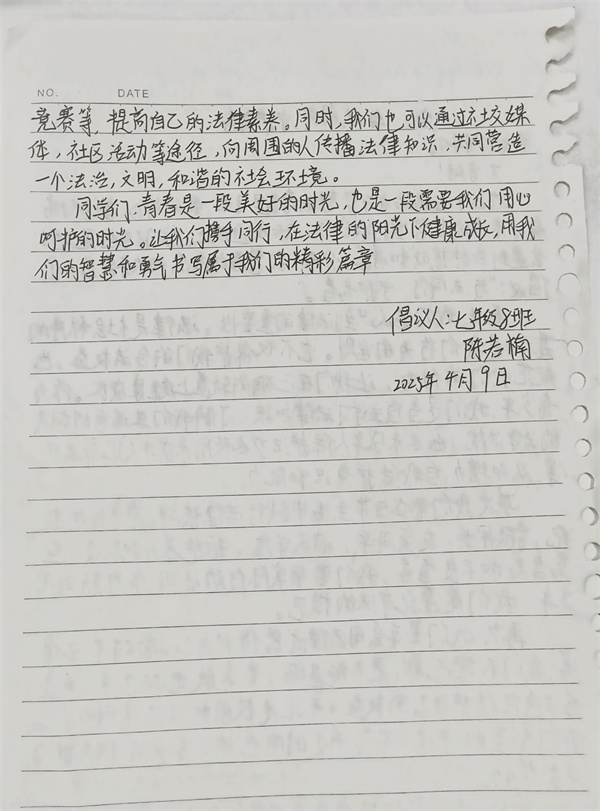 NO. DATE
竞赛等,提高自己的法律素养。同时,我们也可以通过社交媒
体,社区活动等途径,向周围的人传播法律知识,共同营造
一个法治,文明,和谐的社会环境。
同学们,青春是一段美好的时光,也是一段需要我们用心
呵护的时光。让我们携手同行,在法律的阳光下健康成长,用我
们的智慧和勇气书写属于我们的精彩篇章
倡议人:七年级8班
陈若楠
2025年4月9日